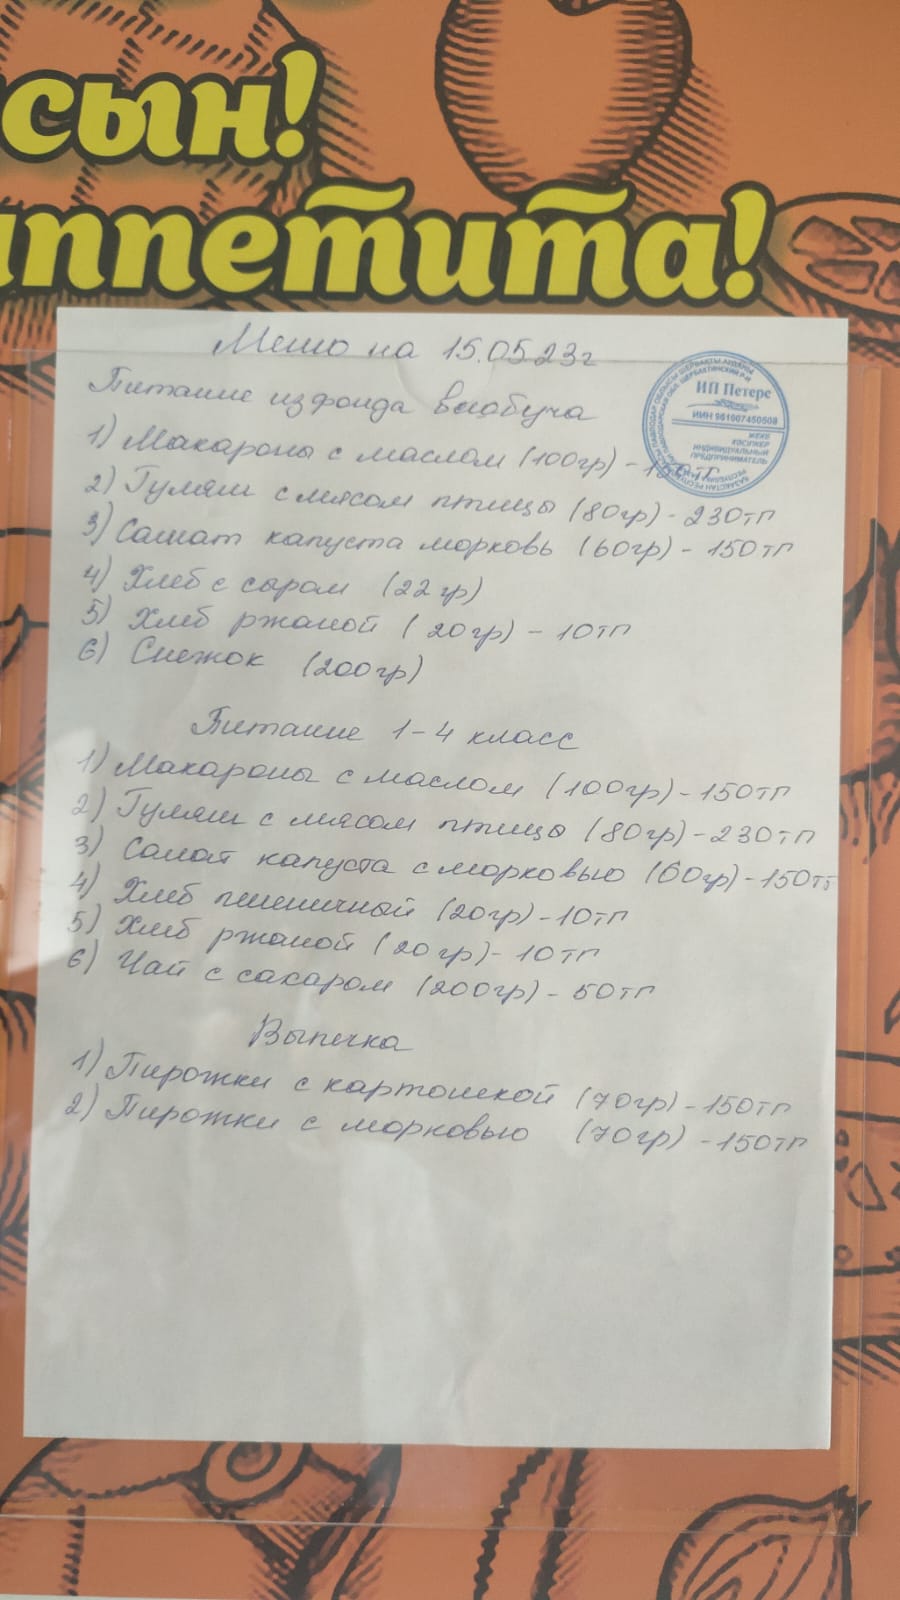 сын!
аппетита!
Меню на 15.05.23г
Питание из фонда всеобуча
1) Макароны с маслом (100гр) - 150тг
2) Гуляш с мясом птицы (80гр) - 230тг
3) Салат капуста морковь (60гр) - 150тг
4) Хлеб с сыром (22гр)
5) Хлеб ржаной (20гр) - 10тг
6) Снежок (200гр)
Питание 1-4 класс
1) Макароны с маслом (100гр) - 150тг
2) Гуляш с мясом птицы (80гр) - 230тг
3) Салат капуста с морковью (60гр) - 150тг
4) Хлеб пшеничный (20гр) - 10тг
5) Хлеб ржаной (20гр) - 10тг
6) Чай с сахаром (200гр) - 50тг
Выпечка
1) Пирожки с картошкой (70гр) - 150тг
2) Пирожки с морковью (70гр) - 150тг
ИП Петерс
ИИН 961007450508
ЖЕКЕ
КӘСІПКЕР
ИНДИВИДУАЛЬНЫЙ
ПРЕДПРИНИМАТЕЛЬ